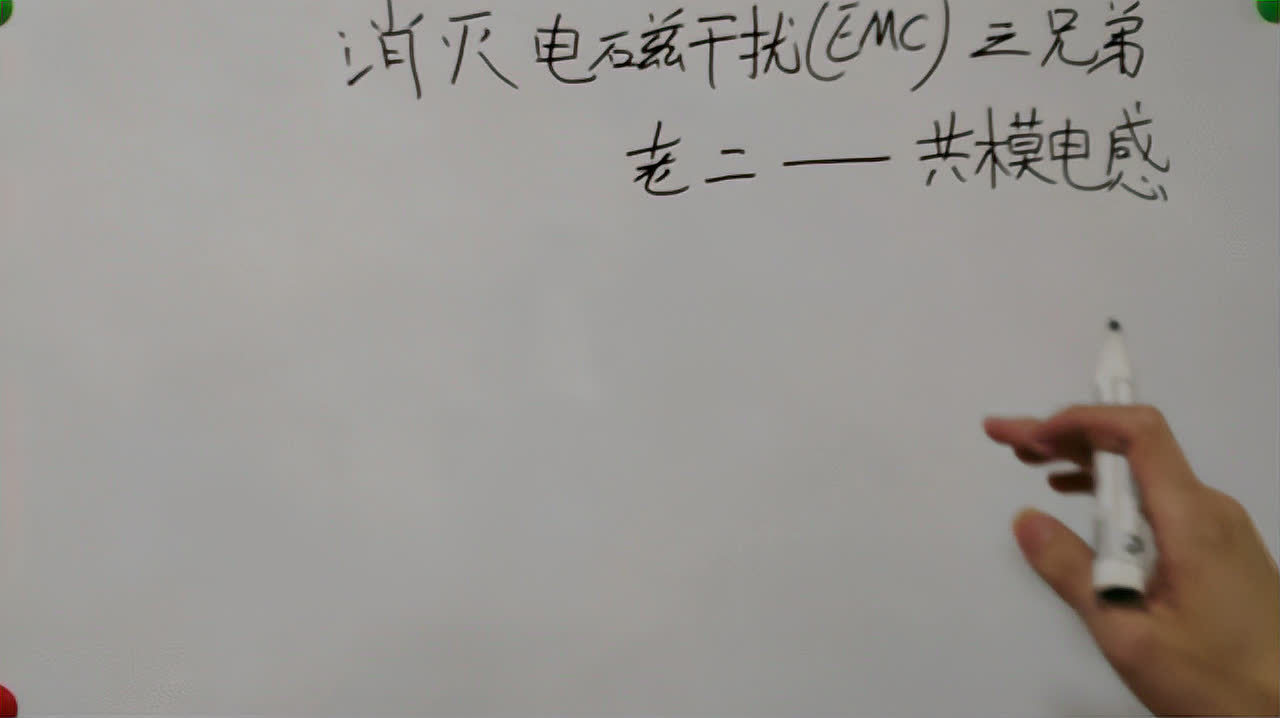 消灭电磁干扰(EMC)三兄弟
老二——共模电感